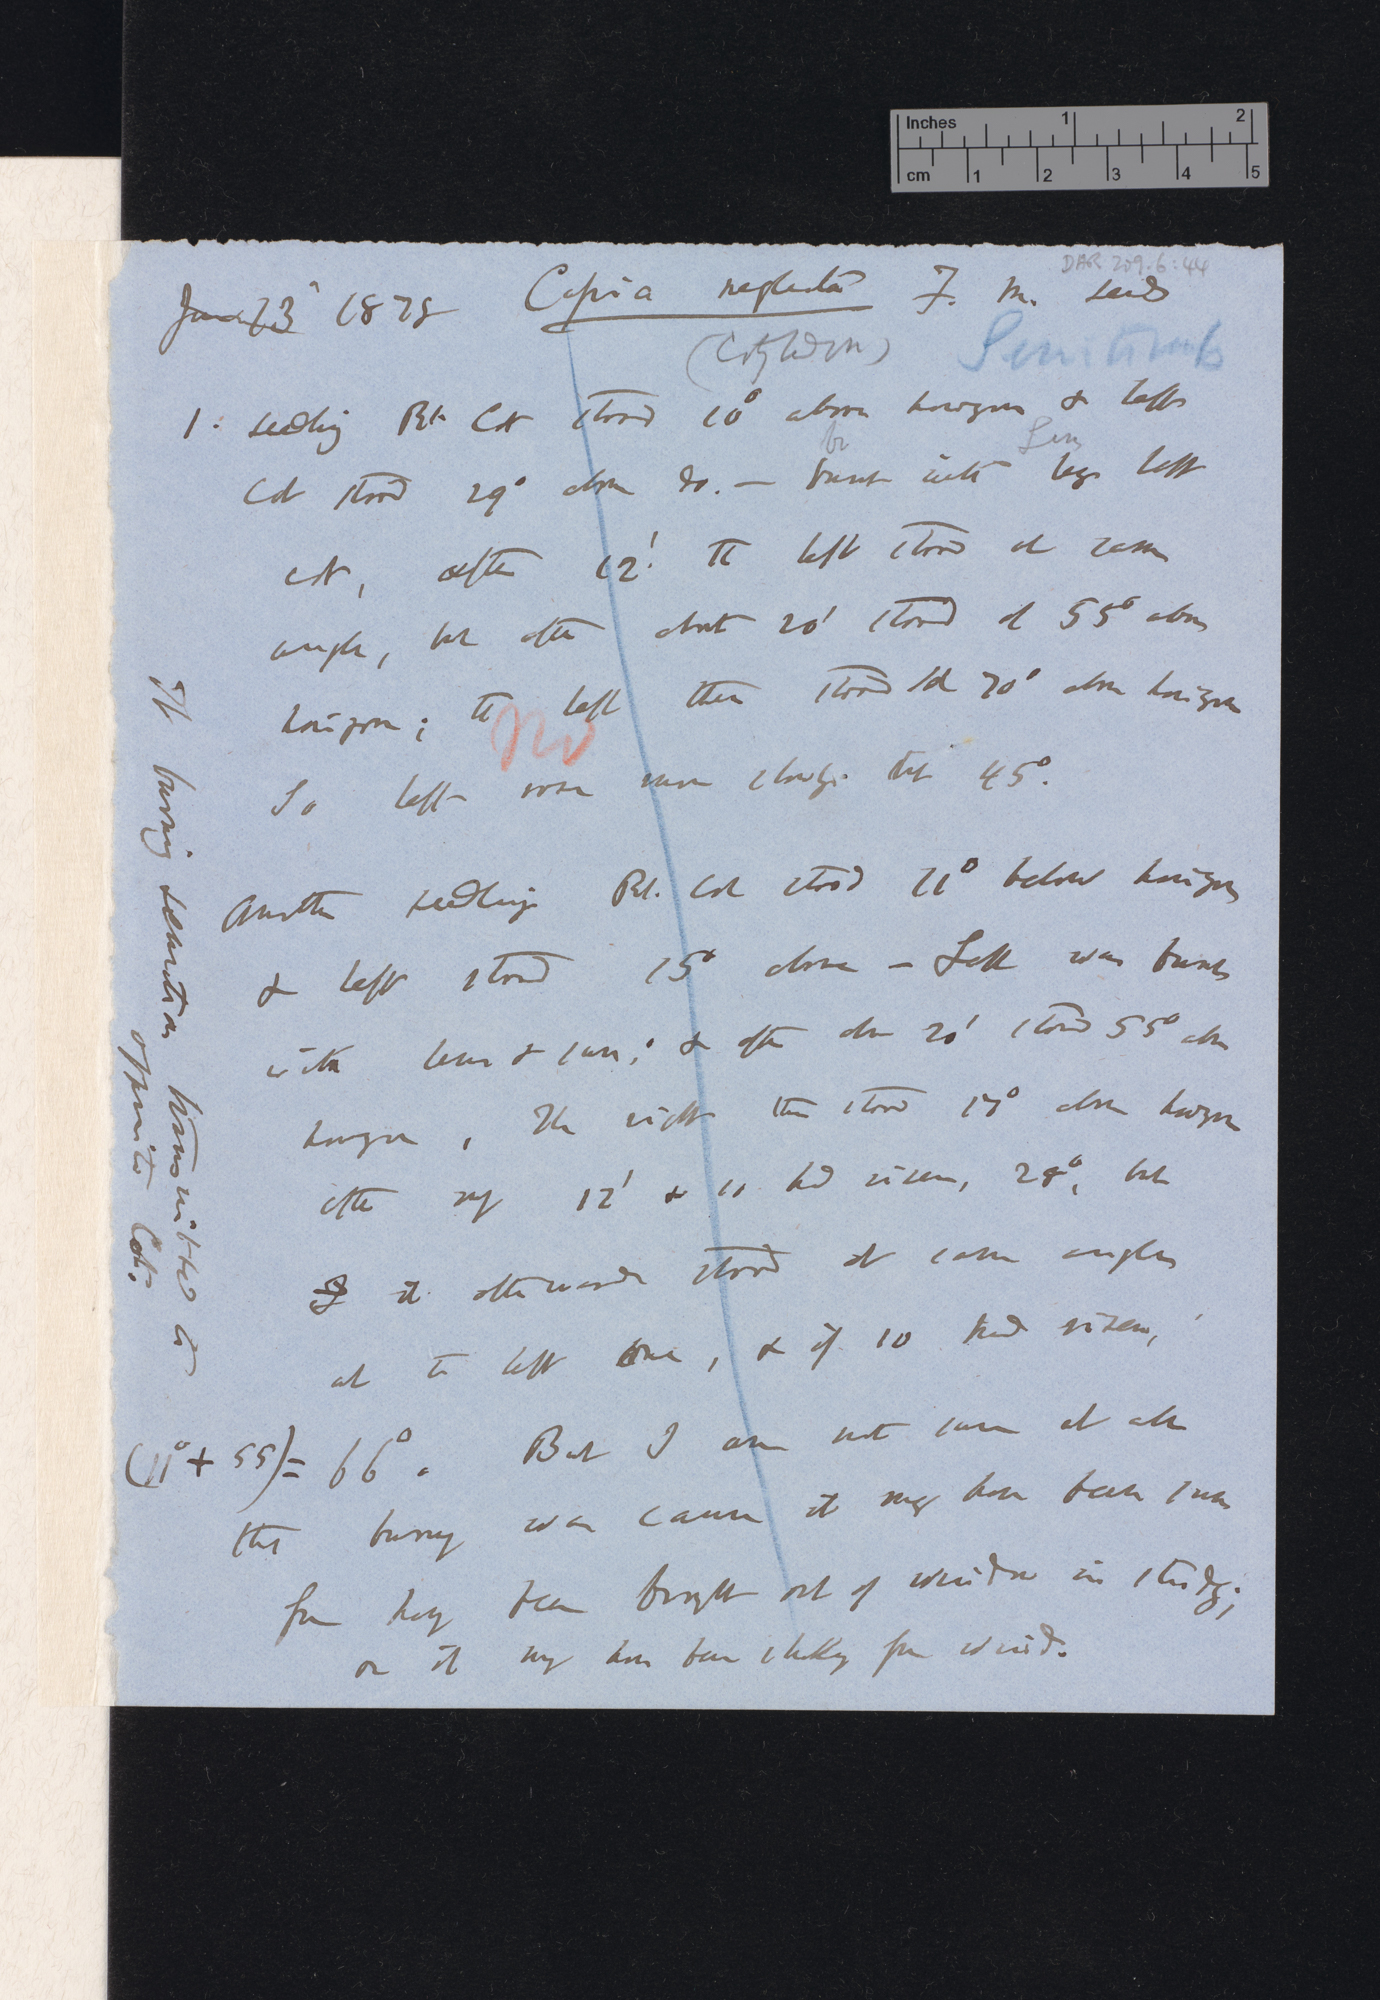 Inches 1 2
cm 1 2 3 4 5
DAR 209.6:44
June 23 1878 Cassia neglecta F. M. seeds
(Cotyledon) Sensitiveness
1. seedling Rt. Cot stood 10° above horizon & left
Cot stood 29° above do. — burnt with left
Cot, after 12' the left stood at same
angle, but after about 20' stood at 55° above
horizon; the left then stood at 70° above horizon
No
So left rose 45°.
Another seedling Rt. Cot stood 11° below horizon
& left stood 15° above — Left was burnt
with lens & sun; & after about 20' stood 55° above
horizon, The right then stood 17° above horizon
after 12' & so had risen, 28°, but
it afterwards stood at same angle
as the left one, & if so had risen,
(11° + 55) = 66°. But I am not sure at all
that burning was cause it may have been
from having been brought out of window in study;
or it may have been shaking from wind.
If burning sensation transmitted to
opposite Cot.